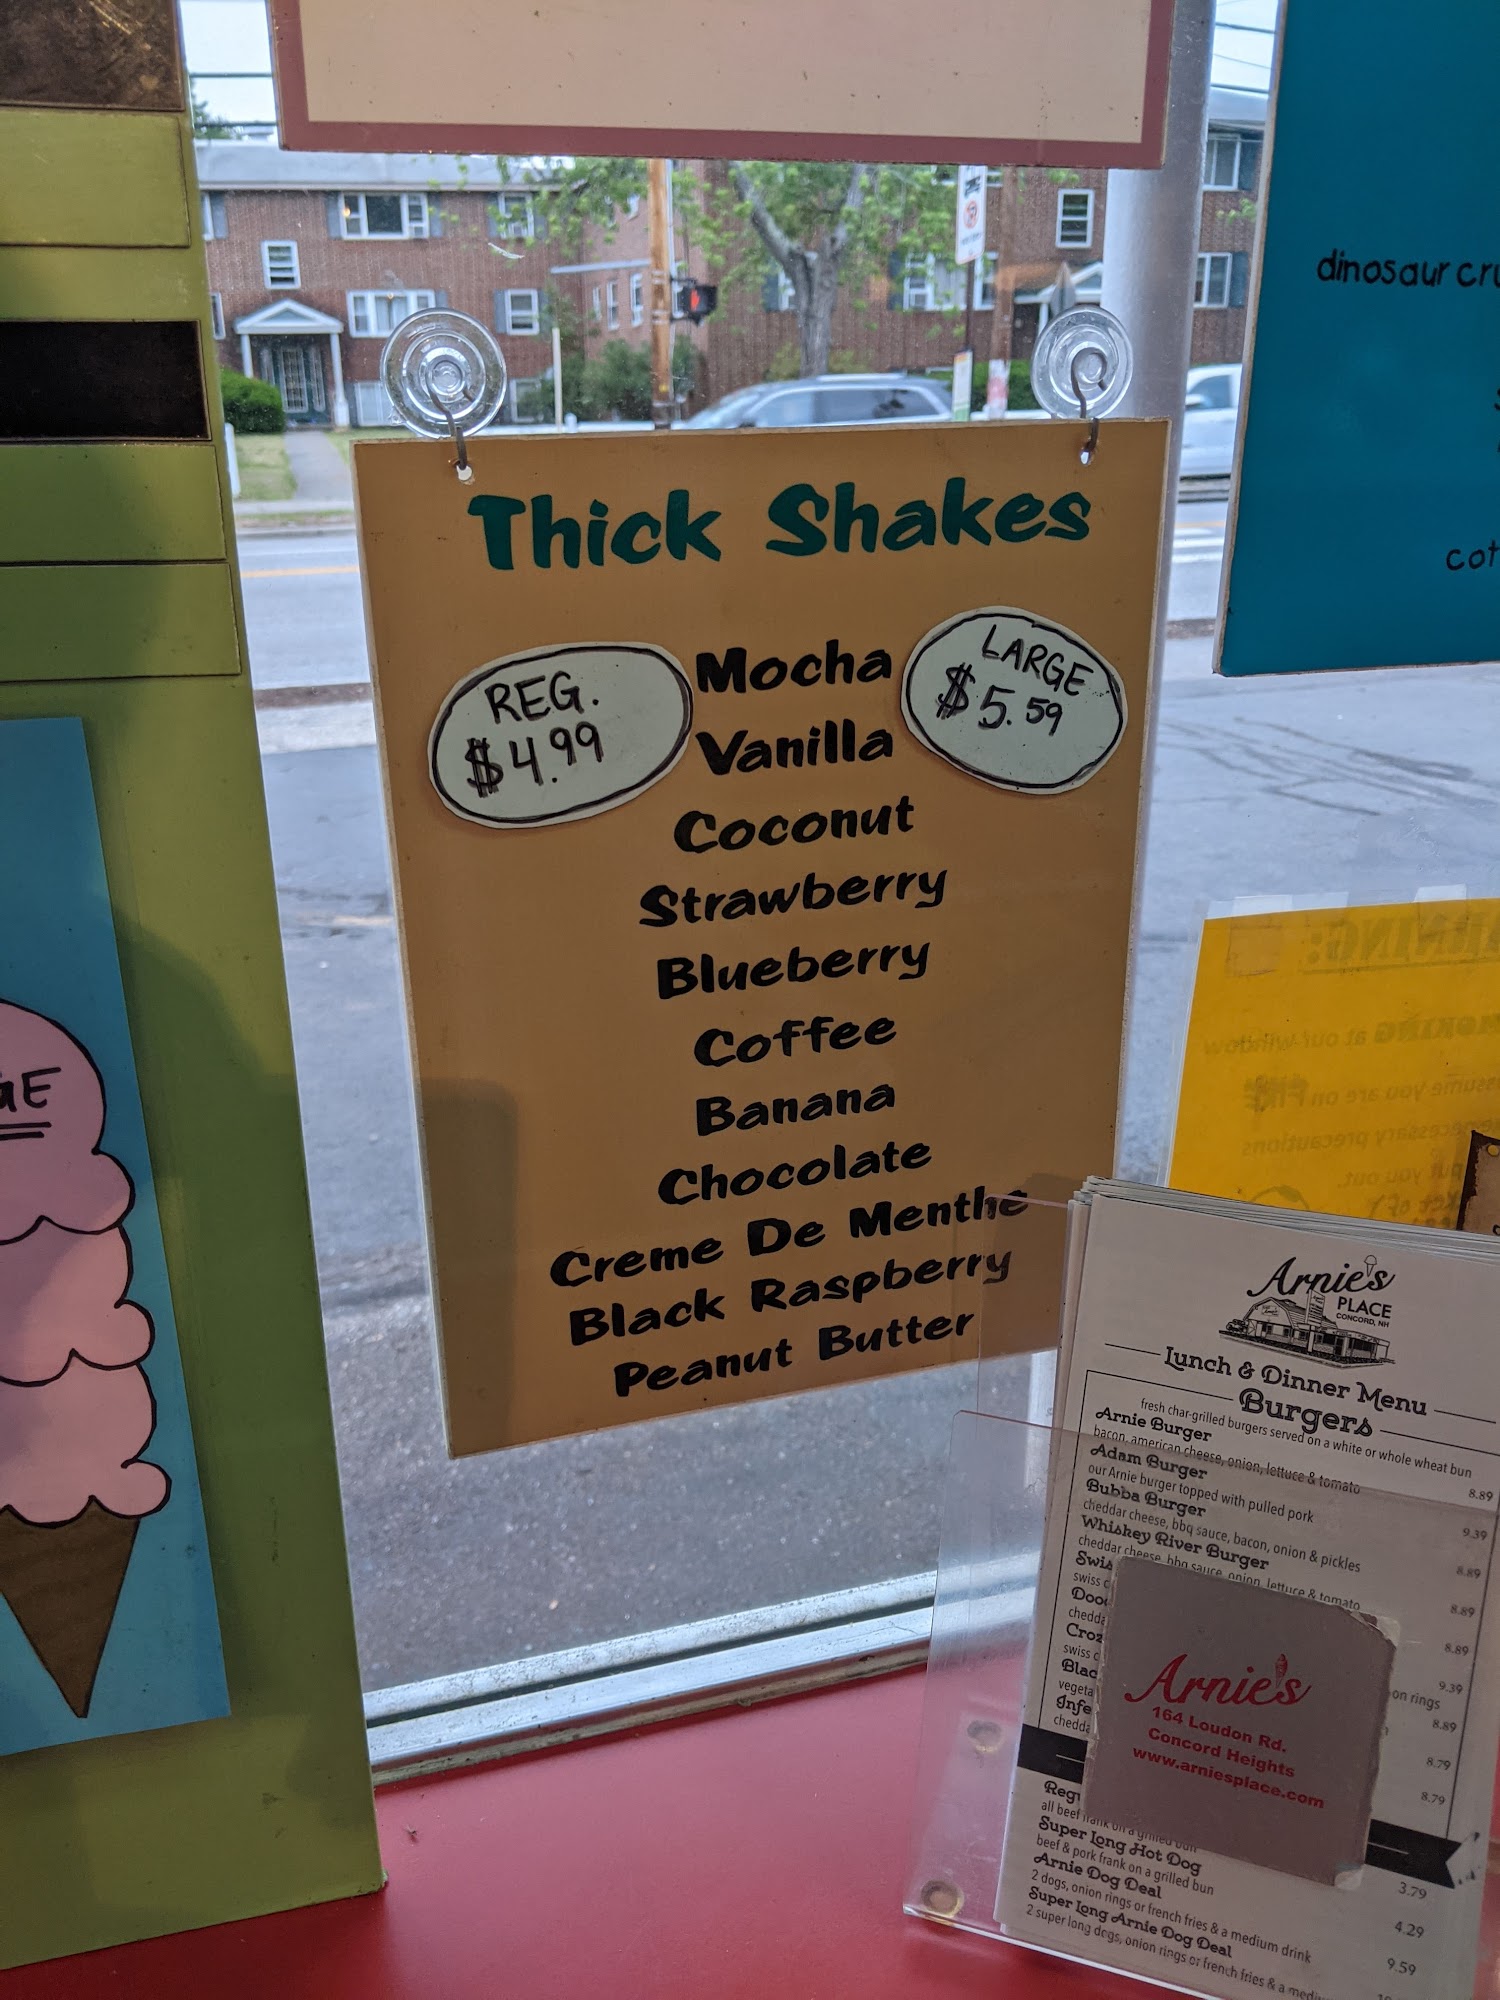 Thick Shakes
REG.
$4.99
LARGE
$5.59
Mocha
Vanilla
Coconut
Strawberry
Blueberry
Coffee
Banana
Chocolate
Creme De Menthe
Black Raspberry
Peanut Butter
dinosaur
Arnie's
PLACE
CONCORD, NH
Lunch & Dinner Menu
Burgers
fresh char-grilled burgers served on a white or whole wheat bun
Arnie Burger
bacon, american cheese, onion, lettuce & tomato 8.89
Adam Burger
our Arnie burger topped with pulled pork 9.39
Bubba Burger
cheddar cheese, bbq sauce, bacon, onion & pickles 8.89
Whiskey River Burger
cheddar cheese, bbq sauce, onion, lettuce & tomato 8.89
8.89
9.39
on rings
8.89
8.79
8.79
Arnie's
164 Loudon Rd.
Concord Heights
www.arniesplace.com
all beef frank on a grilled bun 3.79
Super Long Hot Dog
beef & pork frank on a grilled bun 4.29
Arnie Dog Deal
2 dogs, onion rings or french fries & a medium drink 9.59
Super Long Arnie Dog Deal
2 super long dogs, onion rings or french fries & a
WARNING:
SMOKING at our window
assume you are on FIRE
necessary precautions
put you out.